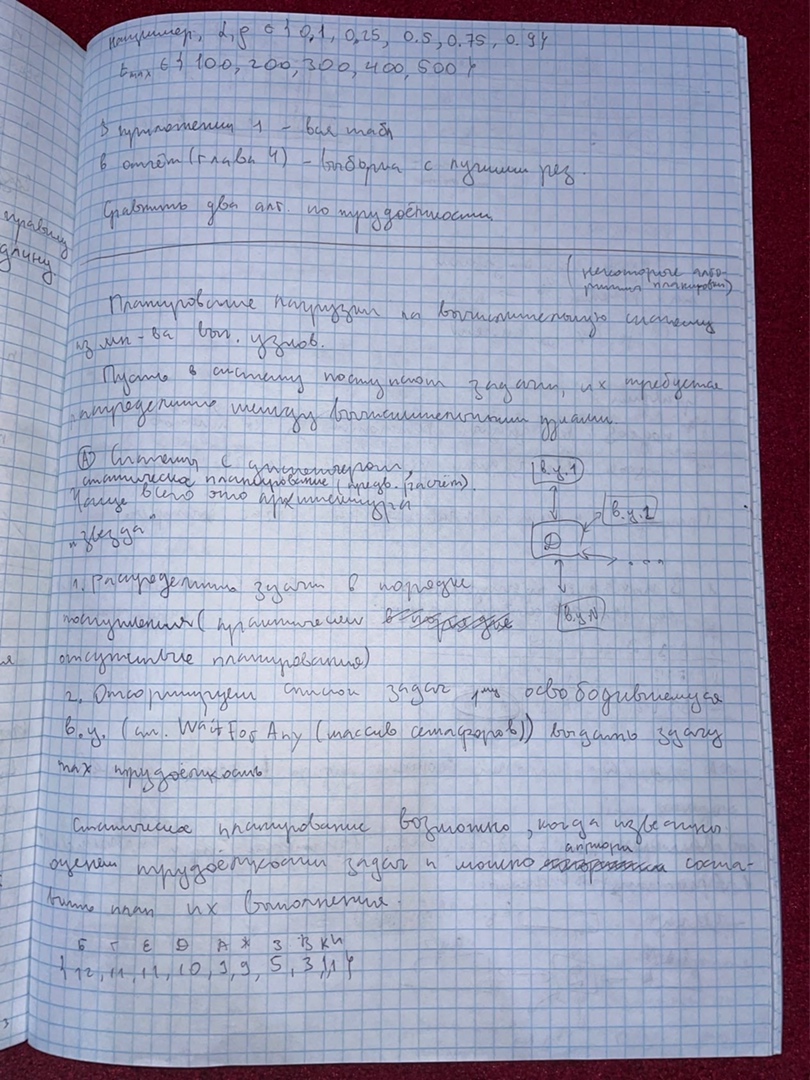 например, α, ρ ∈ {0,1, 0,25, 0.5, 0.75, 0.9}
tmax ∈ {100, 200, 300, 400, 500}
В приложении 1 – вся табл
в отчёт (глава 4) – выборка с лучшими рез.
Сравнить два алг. по трудоёмкости
правому
длину
(некоторые алго-
ритмы планировки)
Планирование нагрузки на вычислительную систему
из мн-ва выч. узлов.
Пусть в систему поступают задачи, их требуется
распределить между вычислительными узлами.
А Система с диспетчером,
статическое планирование (предв. расчёт).
Чаще всего это архитектура
"звезда"
в.у.1
в.у.2
Д
...
в.у.N
1. Распределить задачи в порядке
поступления (практически
отсутствие планирования)
2. Отсортируем список задач освободившемуся
в.у. (см. WaitForAny (массив семафоров)) выдать задачу
max трудоёмкость
Статическое планирование возможно, когда известны
априори
оценки трудоёмкости задач и можно соста-
вить план их выполнения.
Б Г Е Д А Ж З В К И
{12, 11, 11, 10, 9, 9, 5, 3, 1, 1}